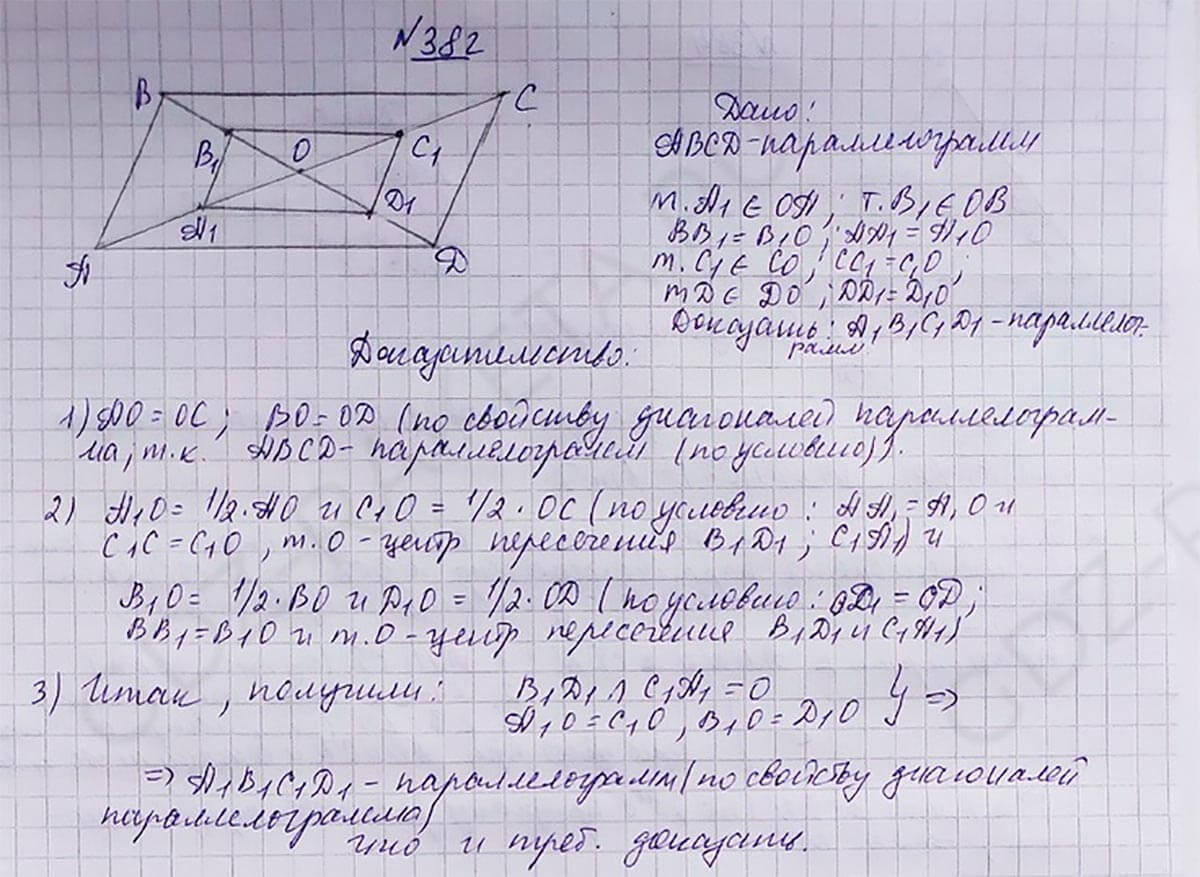 №382
B
C
B1
O
C1
A1
D1
A
D
Дано:
ABCD-параллелограмм
т. A1 ∈ OA; т. B1 ∈ OB
BB1 = B1O; AA1 = A1O
т. C1 ∈ CO; CC1 = C1O;
т D ∈ DO; DD1 = D1O
Доказать: A1B1C1D1 - параллелог-
рамм
Доказательство:
1) AO = OC; BO = OD (по свойству диагоналей параллелограм-
ма, т.к. ABCD - параллелограмм (по условию)).
2) A1O = 1/2·AO и C1O = 1/2·OC (по условию: AA1 = A1O и
C1C = C1O, т.О - центр пересечения B1D1; C1A1) и
B1O = 1/2·BO и D1O = 1/2·OD (по условию: OD1 = OD;
BB1 = B1O и т.О - центр пересечения B1D1 и C1A1)
3) Итак, получили: B1D1 ∩ C1A1 = O
A1O = C1O, B1O = D1O } =>
=> A1B1C1D1 - параллелограмм (по свойству диагоналей
параллелограмма)
что и треб. доказать.